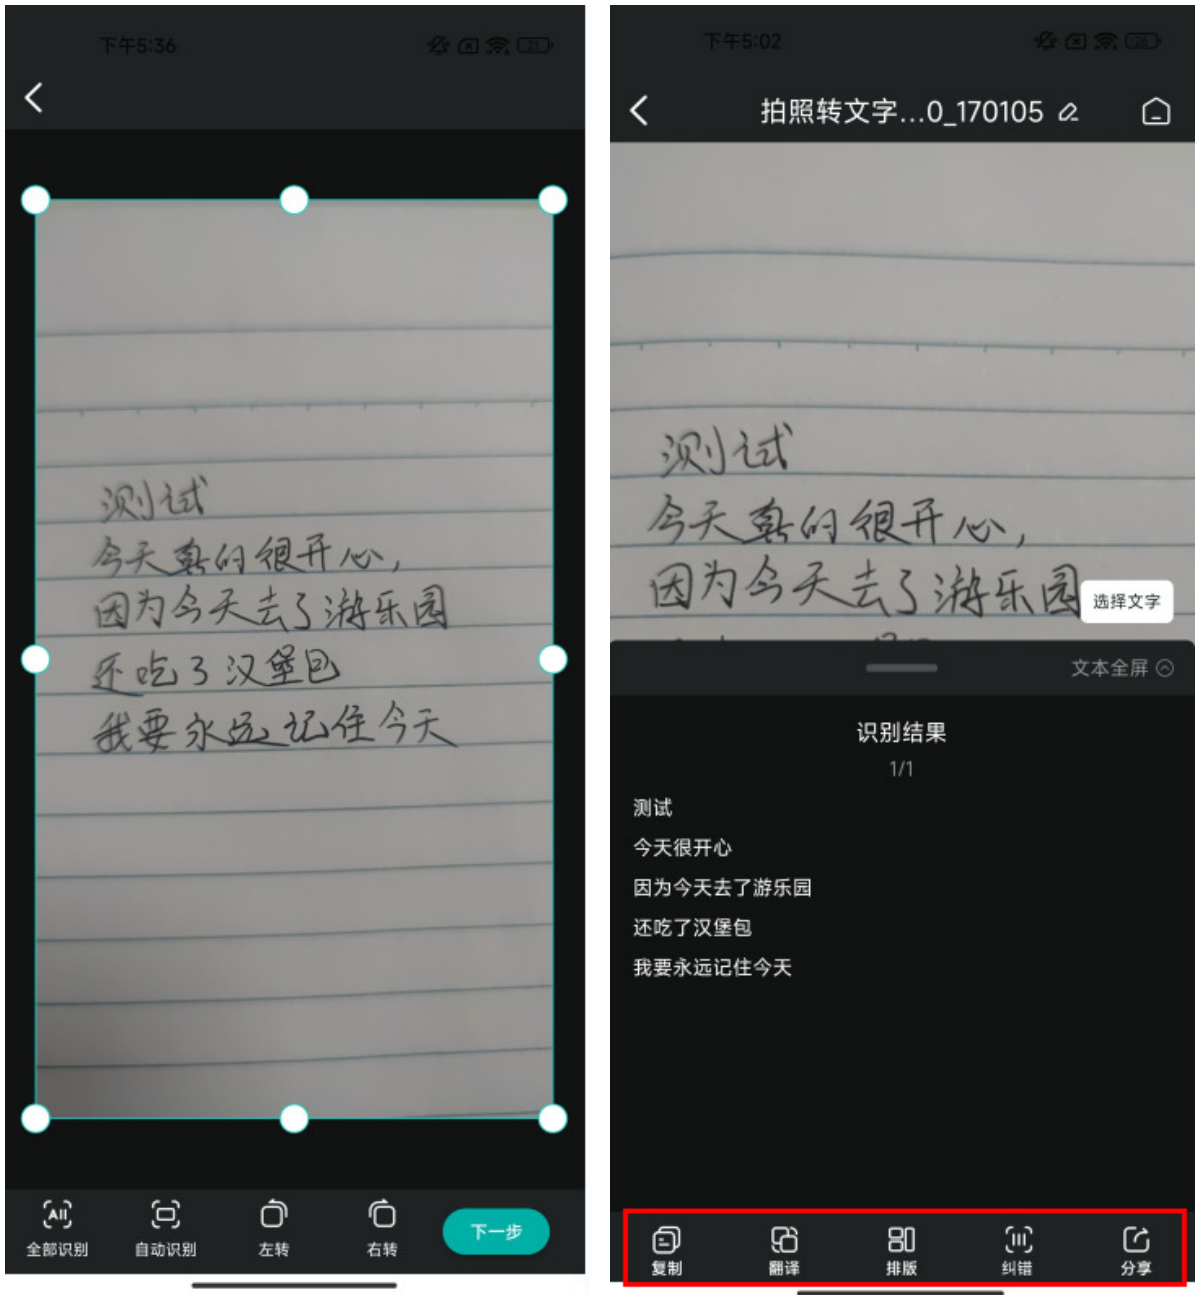 下午5:36
21
测试
今天真的很开心,
因为今天去了游乐园
还吃了汉堡包
我要永远记住今天
全部识别
自动识别
左转
右转
下一步
下午5:02
26
拍照转文字...0_170105
测试
今天真的很开心,
因为今天去了游乐园
选择文字
文本全屏
识别结果
1/1
测试
今天很开心
因为今天去了游乐园
还吃了汉堡包
我要永远记住今天
复制
翻译
排版
纠错
分享